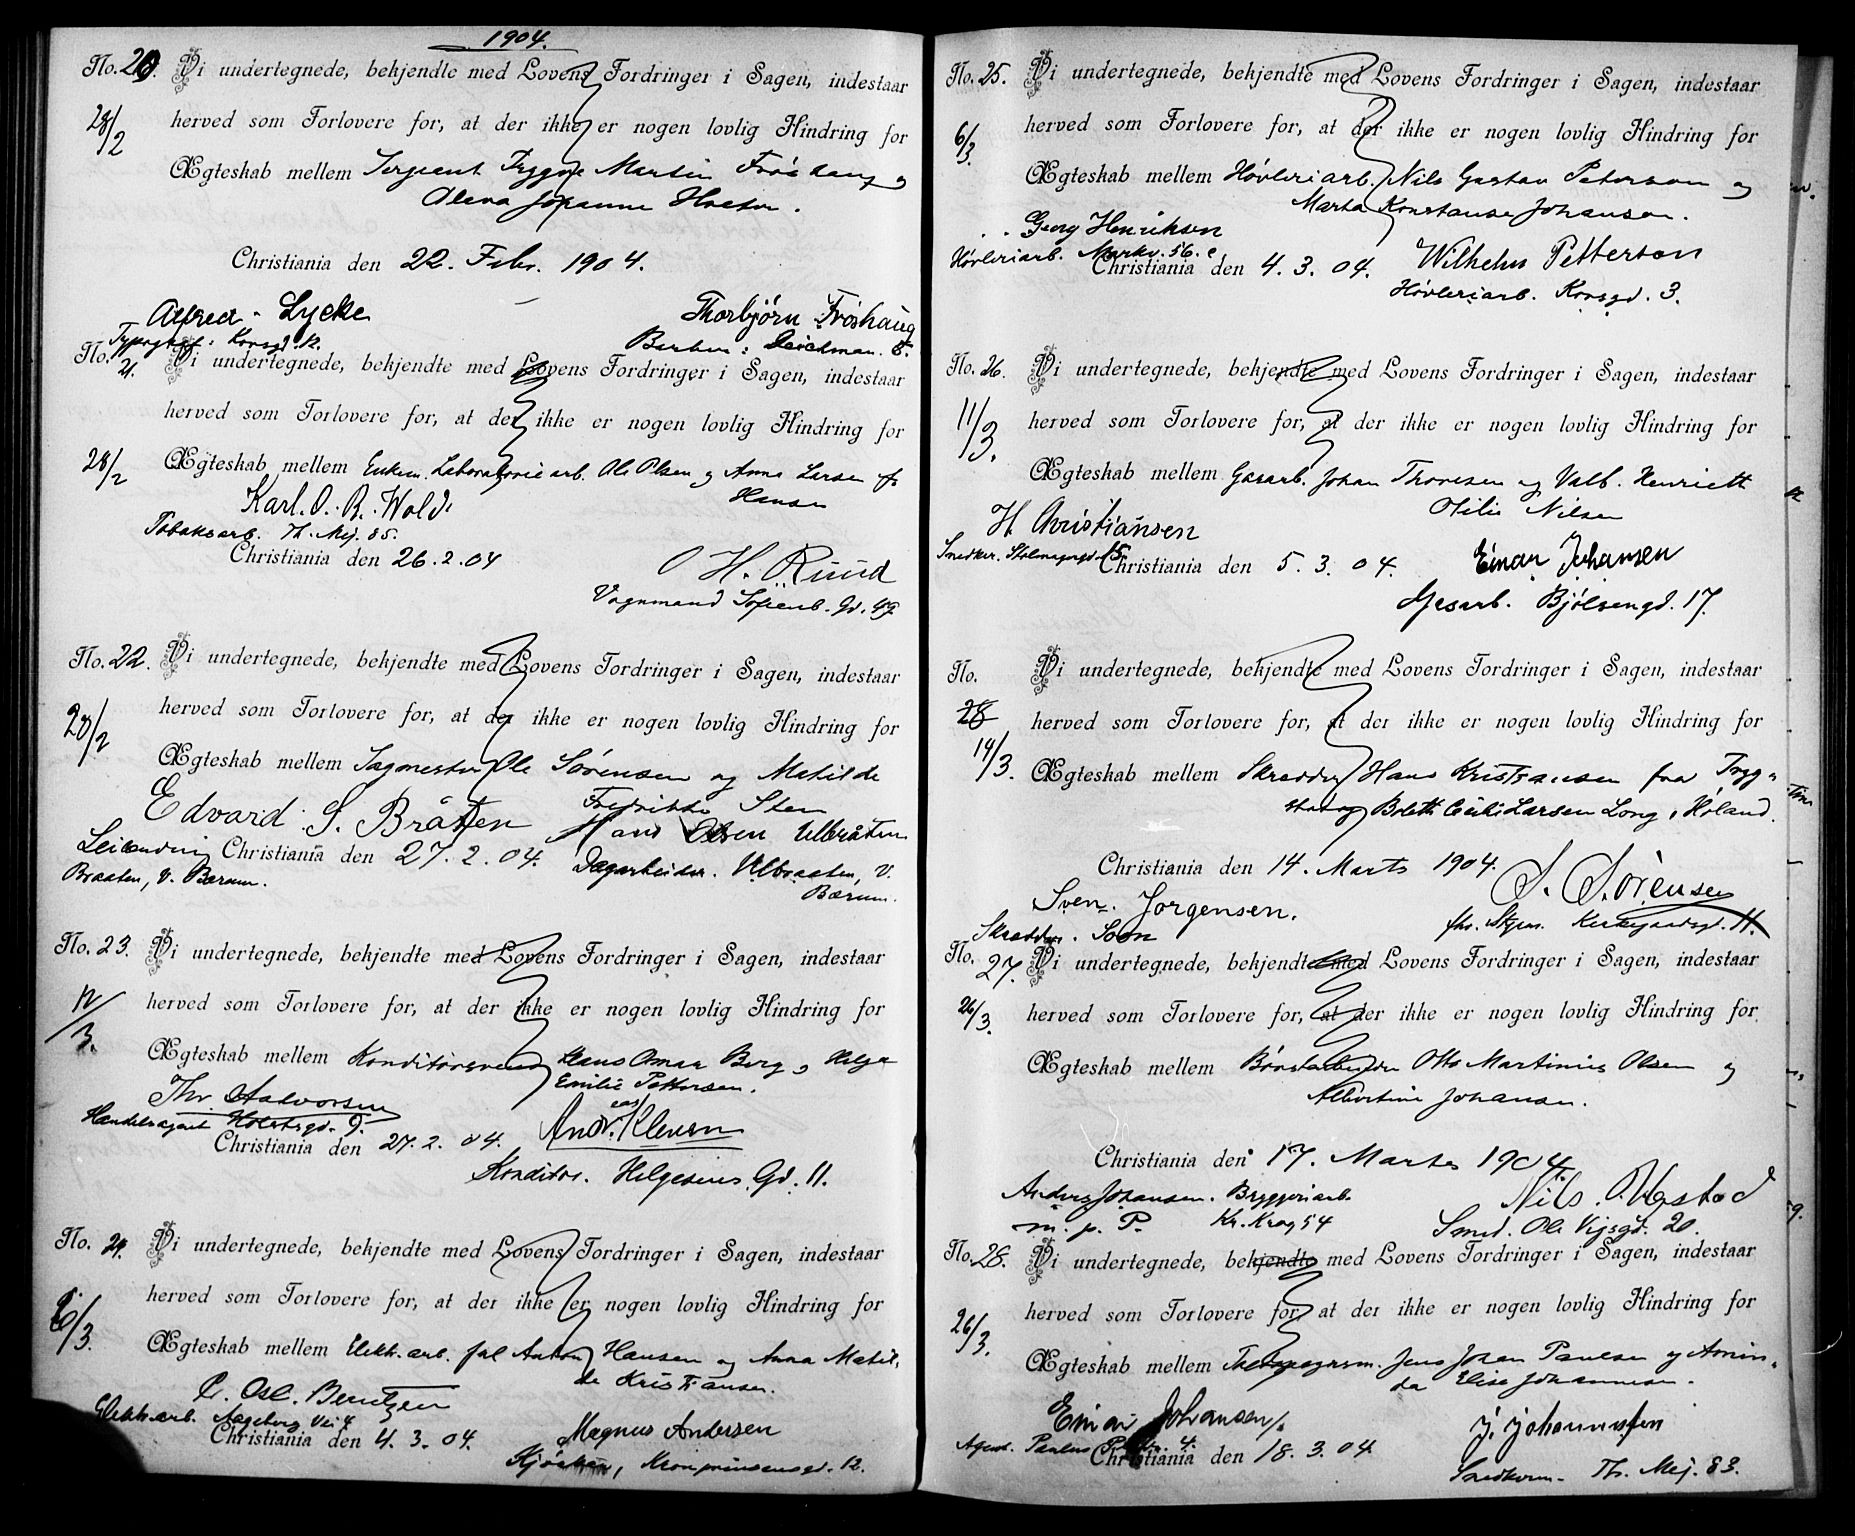 1904.
No. 20. Vi undertegnede, bekjendte med Lovens Fordringer i Sagen, indestaar
28/2 herved som Forlovere for, at der ikke er nogen lovlig Hindring for
Ægteskab mellem Sergeant Trygve Martin Frøshaug og
Olena Johanne
Christiania den 22. Febr. 1904.
Alfred Lycke Thorbjørn Frøshaug
Typograf: Korsgd. Barber: Deichman. 8.
No. 21. Vi undertegnede, bekjendte med Lovens Fordringer i Sagen, indestaar
herved som Forlovere for, at der ikke er nogen lovlig Hindring for
28/2 Ægteskab mellem Enkem. Laboratoriearb. Ole Olsen og Anna Larsen f.
Karl. O. R. Wold. Hansen
Tobaksarb. Th. Mej. 85.
Christiania den 26.2.04
O H. Ruud
Vognmand Sofienb. Gd. 49
No. 22. Vi undertegnede, bekjendte med Lovens Fordringer i Sagen, indestaar
28/2 herved som Forlovere for, at der ikke er nogen lovlig Hindring for
Ægteskab mellem Sagmester Ole Sørensen og Matilde
Fredrikke Sten
Edvard S. Bråten Hans Olsen Ulbråten
Leilending Christiania den 27.2.04. Dagarbeider. Ulbraaten, V.
Braaten, V. Bærum. Bærum.
No. 23. Vi undertegnede, bekjendte med Lovens Fordringer i Sagen, indestaar
12/3. herved som Forlovere for, at der ikke er nogen lovlig Hindring for
Ægteskab mellem Konditorsvend Hans Omar Berg og Helga
Emilie Pettersen.
Thr. Halvorsen
Handelsagent Holstsgd. 9. Andr. Klevens
Christiania den 27.2.04.
Konditor. Helgesens Gd. 11.
No. 24. Vi undertegnede, bekjendte med Lovens Fordringer i Sagen, indestaar
6/3. herved som Forlovere for, at der ikke er nogen lovlig Hindring for
Ægteskab mellem Elektr. arb. Anton Hansen og Anna Matil-
de Kristiansen.
C. Osc. Bentzen
Elektr. arb. Aageberg Vei 4 Magnus Andersen
Christiania den 4.3.04.
Kronprinsensgd. 12.
No. 25. Vi undertegnede, bekjendte med Lovens Fordringer i Sagen, indestaar
6/3. herved som Forlovere for, at der ikke er nogen lovlig Hindring for
Ægteskab mellem Høvleriarb. Nils Gustav Peterson og
Marta Konstanse Johansen.
Georg Henriksen
Høvleriarb. Markv. 56.c Wilhelm Petterson
Christiania den 4.3.04.
Høvleriarb. Korsgd. 3.
No. 26. Vi undertegnede, bekjendte med Lovens Fordringer i Sagen, indestaar
11/3. herved som Forlovere for, at der ikke er nogen lovlig Hindring for
Ægteskab mellem Gasarb. Johan Thoresen og Valb. Henriett
Otilie Nilsen
H. Christiansen
Snedker. Stolmagergd. 15. Einar Johansen
Christiania den 5.3.04.
Gasarb. Bjølsengd. 17.
No. Vi undertegnede, bekjendte med Lovens Fordringer i Sagen, indestaar
28 herved som Forlovere for, at der ikke er nogen lovlig Hindring for
14/3. Ægteskab mellem Skrædder Hans Kristiansen fra Tryg-
stad og Bolette Cecilie Larsen Long, Høland.
Christiania den 14. Marts 1904.
Sven. Jørgensen. S. Sørensen
Skrædder. Soon Kirkegaardsgd. 11.
No. 27. Vi undertegnede, bekjendte med Lovens Fordringer i Sagen, indestaar
26/3. herved som Forlovere for, at der ikke er nogen lovlig Hindring for
Ægteskab mellem Børstearbeider Otto Martinius Olsen og
Albertine Johansen.
Christiania den 17. Marts 1904.
Anders Johansen. Bryggeriarb. Nils. Ulvestad
m. p. P. Kr. Krog 54 Smed. Ole Vigsgd. 20.
No. 28. Vi undertegnede, bekjendte med Lovens Fordringer i Sagen, indestaar
herved som Forlovere for, at der ikke er nogen lovlig Hindring for
26/3. Ægteskab mellem Jens Johan Paulsen og Amin-
da Elise Johannesen.
Einar Johansen J. Johannessen
Agent. Paulus 4.
Christiania den 18.3.04
Snedkerm. Th. Mej. 83.